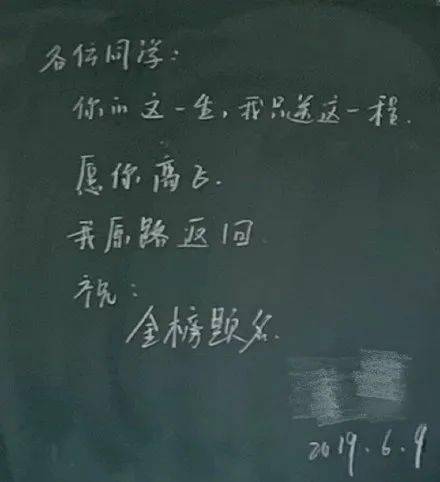 各位同学：
你的这一生，我只送这一程.
愿你高飞.
我原路返回
祝：
金榜题名.
2019.6.9